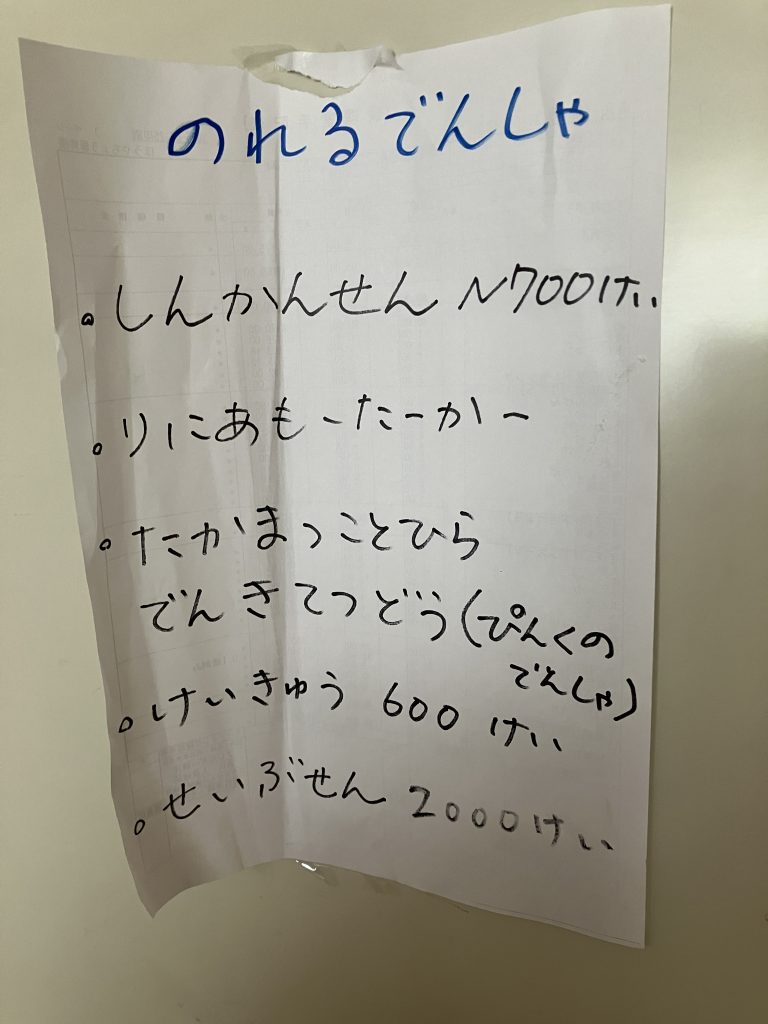 のれるでんしゃ
。しんかんせん N700けい
。りにあもーたーかー
。たかまつことひら
でんきてつどう(ぴんくの
でんしゃ)
。けいきゅう 600 けい
。せいぶせん 2000けい